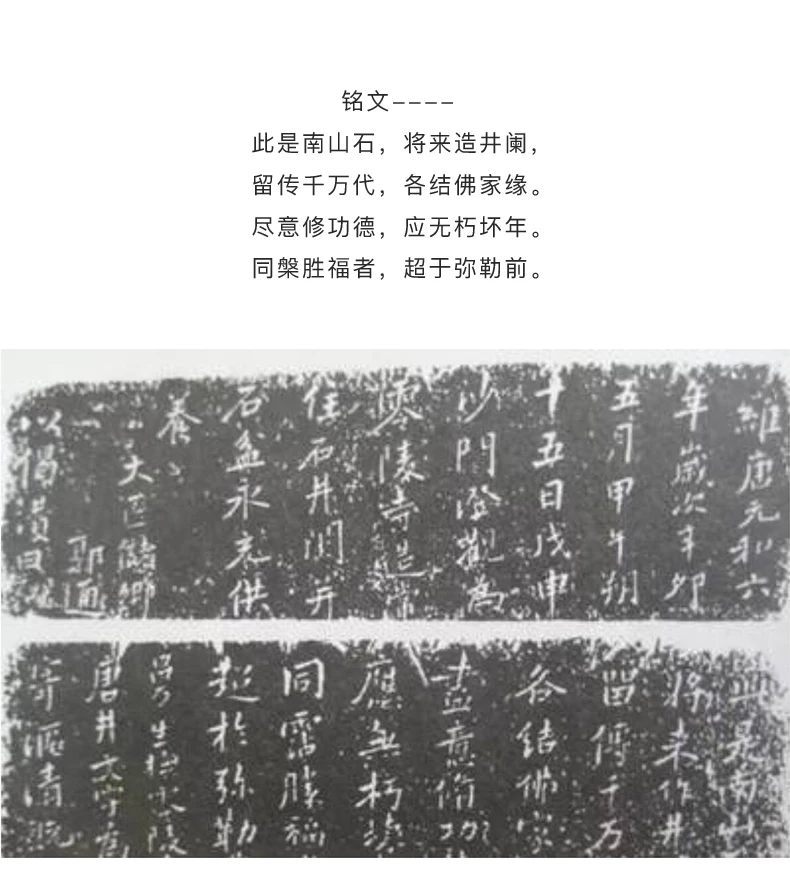 铭文----
此是南山石，将来造井阑，
留传千万代，各结佛家缘。
尽意修功德，应无朽坏年。
同槃胜福者，超于弥勒前。
維唐元和六
年歲次辛卯
五月甲午朔
十五日戊申
沙門澄觀為
零陵寺造常
住石井闌并
石盆永充供
養
大匠儲卿
郭通
以偈讚曰
此是南山
將来作井
留傳千万
各結佛家
盡意脩功
應無朽壞
同霑勝福
超於弥勒
唐井文字